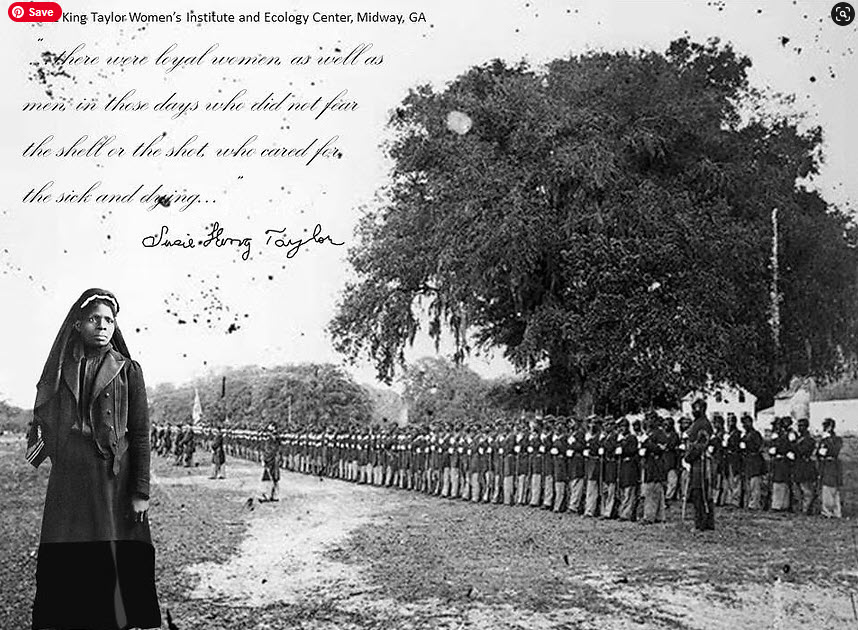 Save
King Taylor Women's Institute and Ecology Center, Midway, GA
"...there were loyal women, as well as
men, in those days who did not fear
the shell or the shot, who cared for
the sick and dying..."
Susie King Taylor